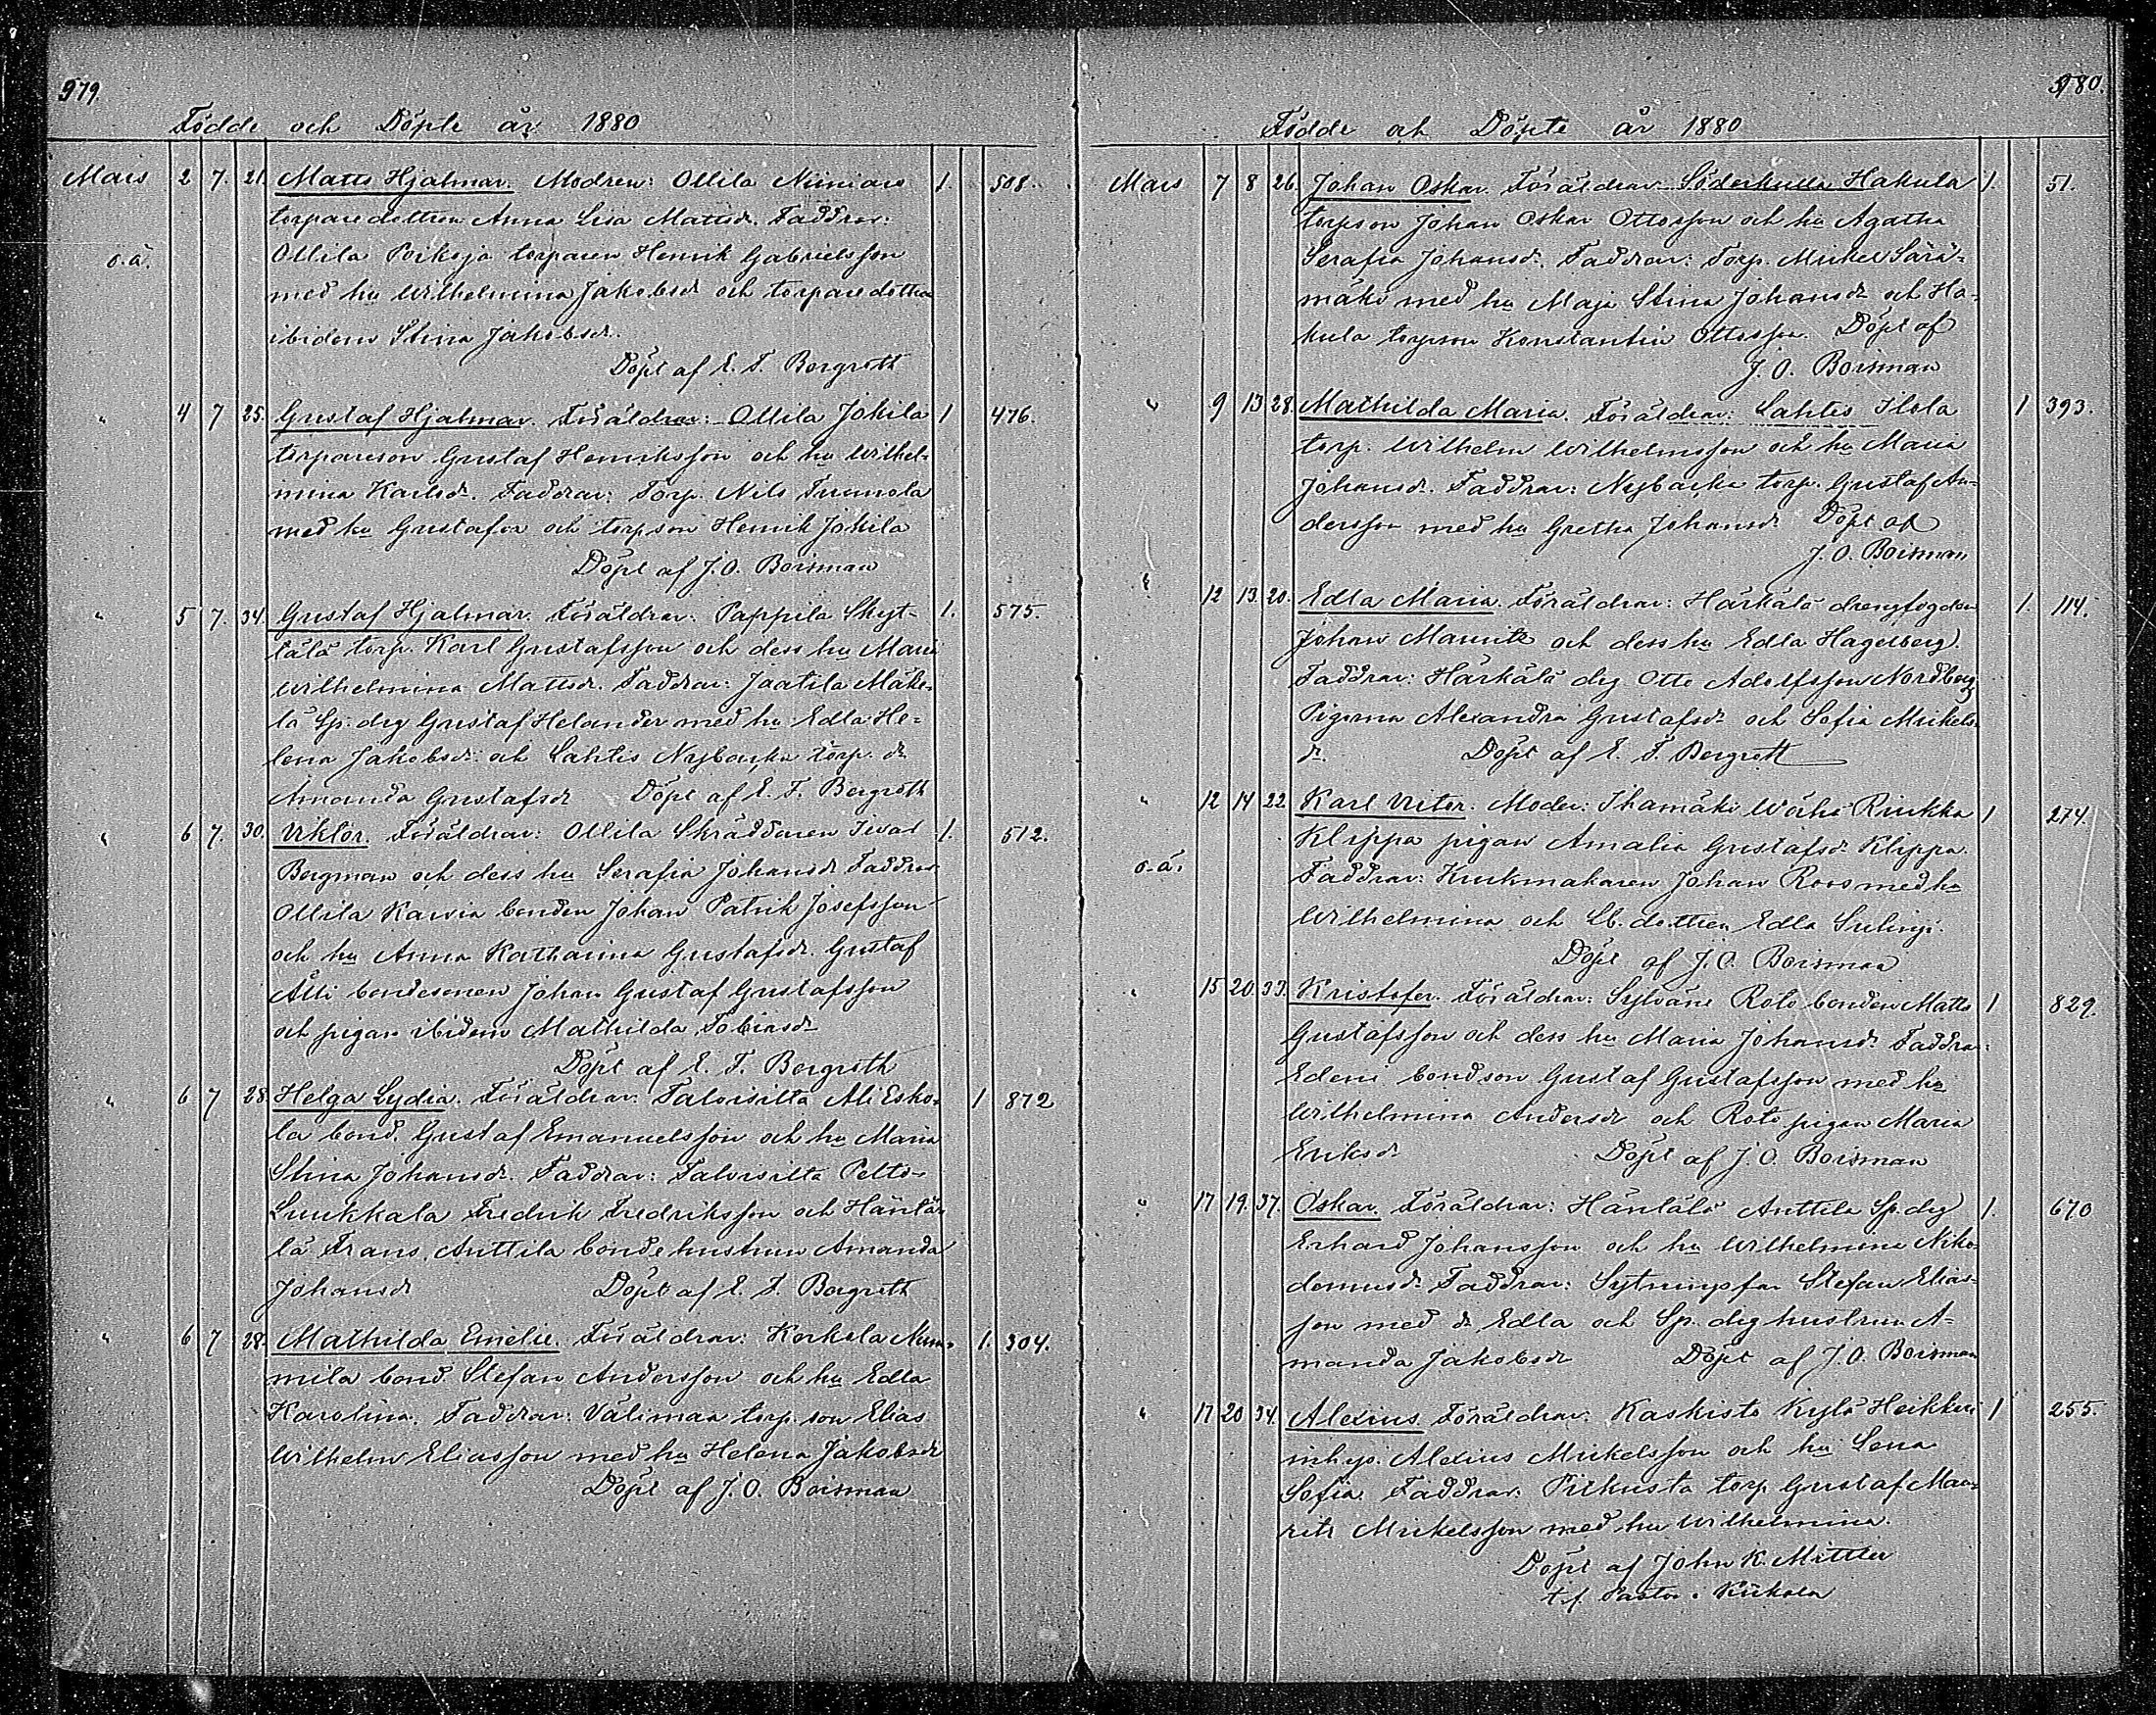 979.
Födde och Döpte år 1880
Mars 2 7. 21. Matts Hjalmar. Modren: Ollila Niiniaro 1. 508.
torparedottren Anna Lisa Mattsdr. Faddrar:
o.ä. Ollila Poikoja torparen Henrik Gabrielsson
med hu Wilhelmina Jakobsdr och torparedottren
ibidem Stina Jakobsdr.
Döpt af E. F. Bergroth
" 4 7 25. Gustaf Hjalmar. Föräldrar: Ollila Jokila 1 476.
torpareson Gustaf Henriksson och hu Wilhel-
mina Karlsdr. Faddrar: Torp. Nils Tuomola
med hu Gustafva och torpson Henrik Jokila
Döpt af J. O. Boisman
" 5 7. 34. Gustaf Hjalmar. Föräldrar: Pappila Skyt- 1. 575.
tälä torp. Karl Gustafsson och dess hu Maria
Wilhelmina Mattsdr. Faddrar: Jaatila Mäke-
lä Sp. drg Gustaf Helander med hu Edla He-
lena Jakobsdr och Lahtis Nybacka torp. dr
Amanda Gustafsdr Döpt af E. F. Bergroth
" 6 7. 30. Viktor. Föräldrar: Ollila Skräddaren Ivar 1. 512.
Bergman och dess hu Serafia Johansdr Faddrar
Ollila Karvia bonden Johan Patrik Josefsson
och hu Anna Katharina Gustafsdr. Gustaf
Ålli bondesonen Johan Gustaf Gustafsson
och pigan ibidem Mathilda Tobiasdr
Döpt af E. F. Bergroth
" 6 7 28. Helga Lydia. Föräldrar: Talvisilta Ali Esko- 1 872
la bond. Gustaf Emanuelsson och hu Maria
Stina Johansdr. Faddrar: Talvisilta Pelto-
Luukkala Fredrik Fredriksson och Häntä-
lä Frans. Anttila bondehustrun Amanda
Johansdr Döpt af E. F. Bergroth
" 6 7 28. Mathilda Emelie. Föräldrar: Korkela Mum- 1. 304.
mila bond. Stefan Andersson och hu Edla
Karolina. Faddrar: Välimaa torp. son Elias
Wilhelm Eliasson med hu Helena Jakobsdr
Döpt af J. O. Boisman
980.
Födde och Döpte år 1880
Mars 7 8 26. Johan Oskar. Föräldrar: Söderkulla Hakula 1. 51.
torpson Johan Oskar Ottosson och hu Agatha
Serafia Johansdr. Faddrar: Torp. Mikel Särä-
mäki med hu Maja Stina Johansdr och Ha-
kula torpson Konstantin Ottosson. Döpt af
J. O. Boisman
" 9 13 28. Mathilda Maria. Föräldrar: Lahtis Ilola 1 393.
torp. Wilhelm Wilhelmsson och hu Maria
Johansdr. Faddrar: Nybacka torp. Gustaf An-
dersson med hu Gretha Johansdr Döpt af
J. O. Boisman
" 12 13. 20. Edla Maria. Föräldrar: Härkälä drengfogden 1. 114.
Johan Mauritz och dess hu Edla Hagelberg.
Faddrar: Härkälä drg. Otto Adolfsson Nordberg
Pigorna Alexandra Gustafsdr och Sofia Mikels-
dr. Döpt af E. F. Bergroth
" 12 14 22. Karl Victor. Moder: Ihamäki Wäha Riukka 1 274.
Klippa pigan Amalia Gustafsdr Klippa.
o.ä. Faddrar: Krukmakaren Johan Roos med hu
Wilhelmina och Lb. dottren Edla Sulin.
Döpt af J. O. Boisman
" 15 20 33. Kristofer. Föräldrar: Sylvänä Roto bonden Matts 1 829.
Gustafsson och dess hu Maria Johansdr Faddrar:
Edeni bondson Gustaf Gustafsson med hu
Wilhelmina Andersdr och Roto pigan Maria
Eriksdr Döpt af J. O. Boisman
" 17 19. 37. Oskar. Föräldrar: Häntälä Anttila Sp. drg 1. 670
Erhard Johansson och hu Wilhelmina Niko-
demusdr. Faddrar: Sytningsfar Stefan Elias-
son med dr Edla och Sp. drg hustrun A-
manda Jakobsdr Döpt af J. O. Boisman
" 17 20 34. Alexius. Föräldrar: Kaskisto Kylä Heikkilä 1 255.
inhys. Alexius Mikelsson och hu Lena
Sofia. Faddrar: Pitkusta torp Gustaf Mau-
ritz Mikelsson med hu Wilhelmina.
Döpt af John K. Mittler
t.f. Pastor i Kiikala